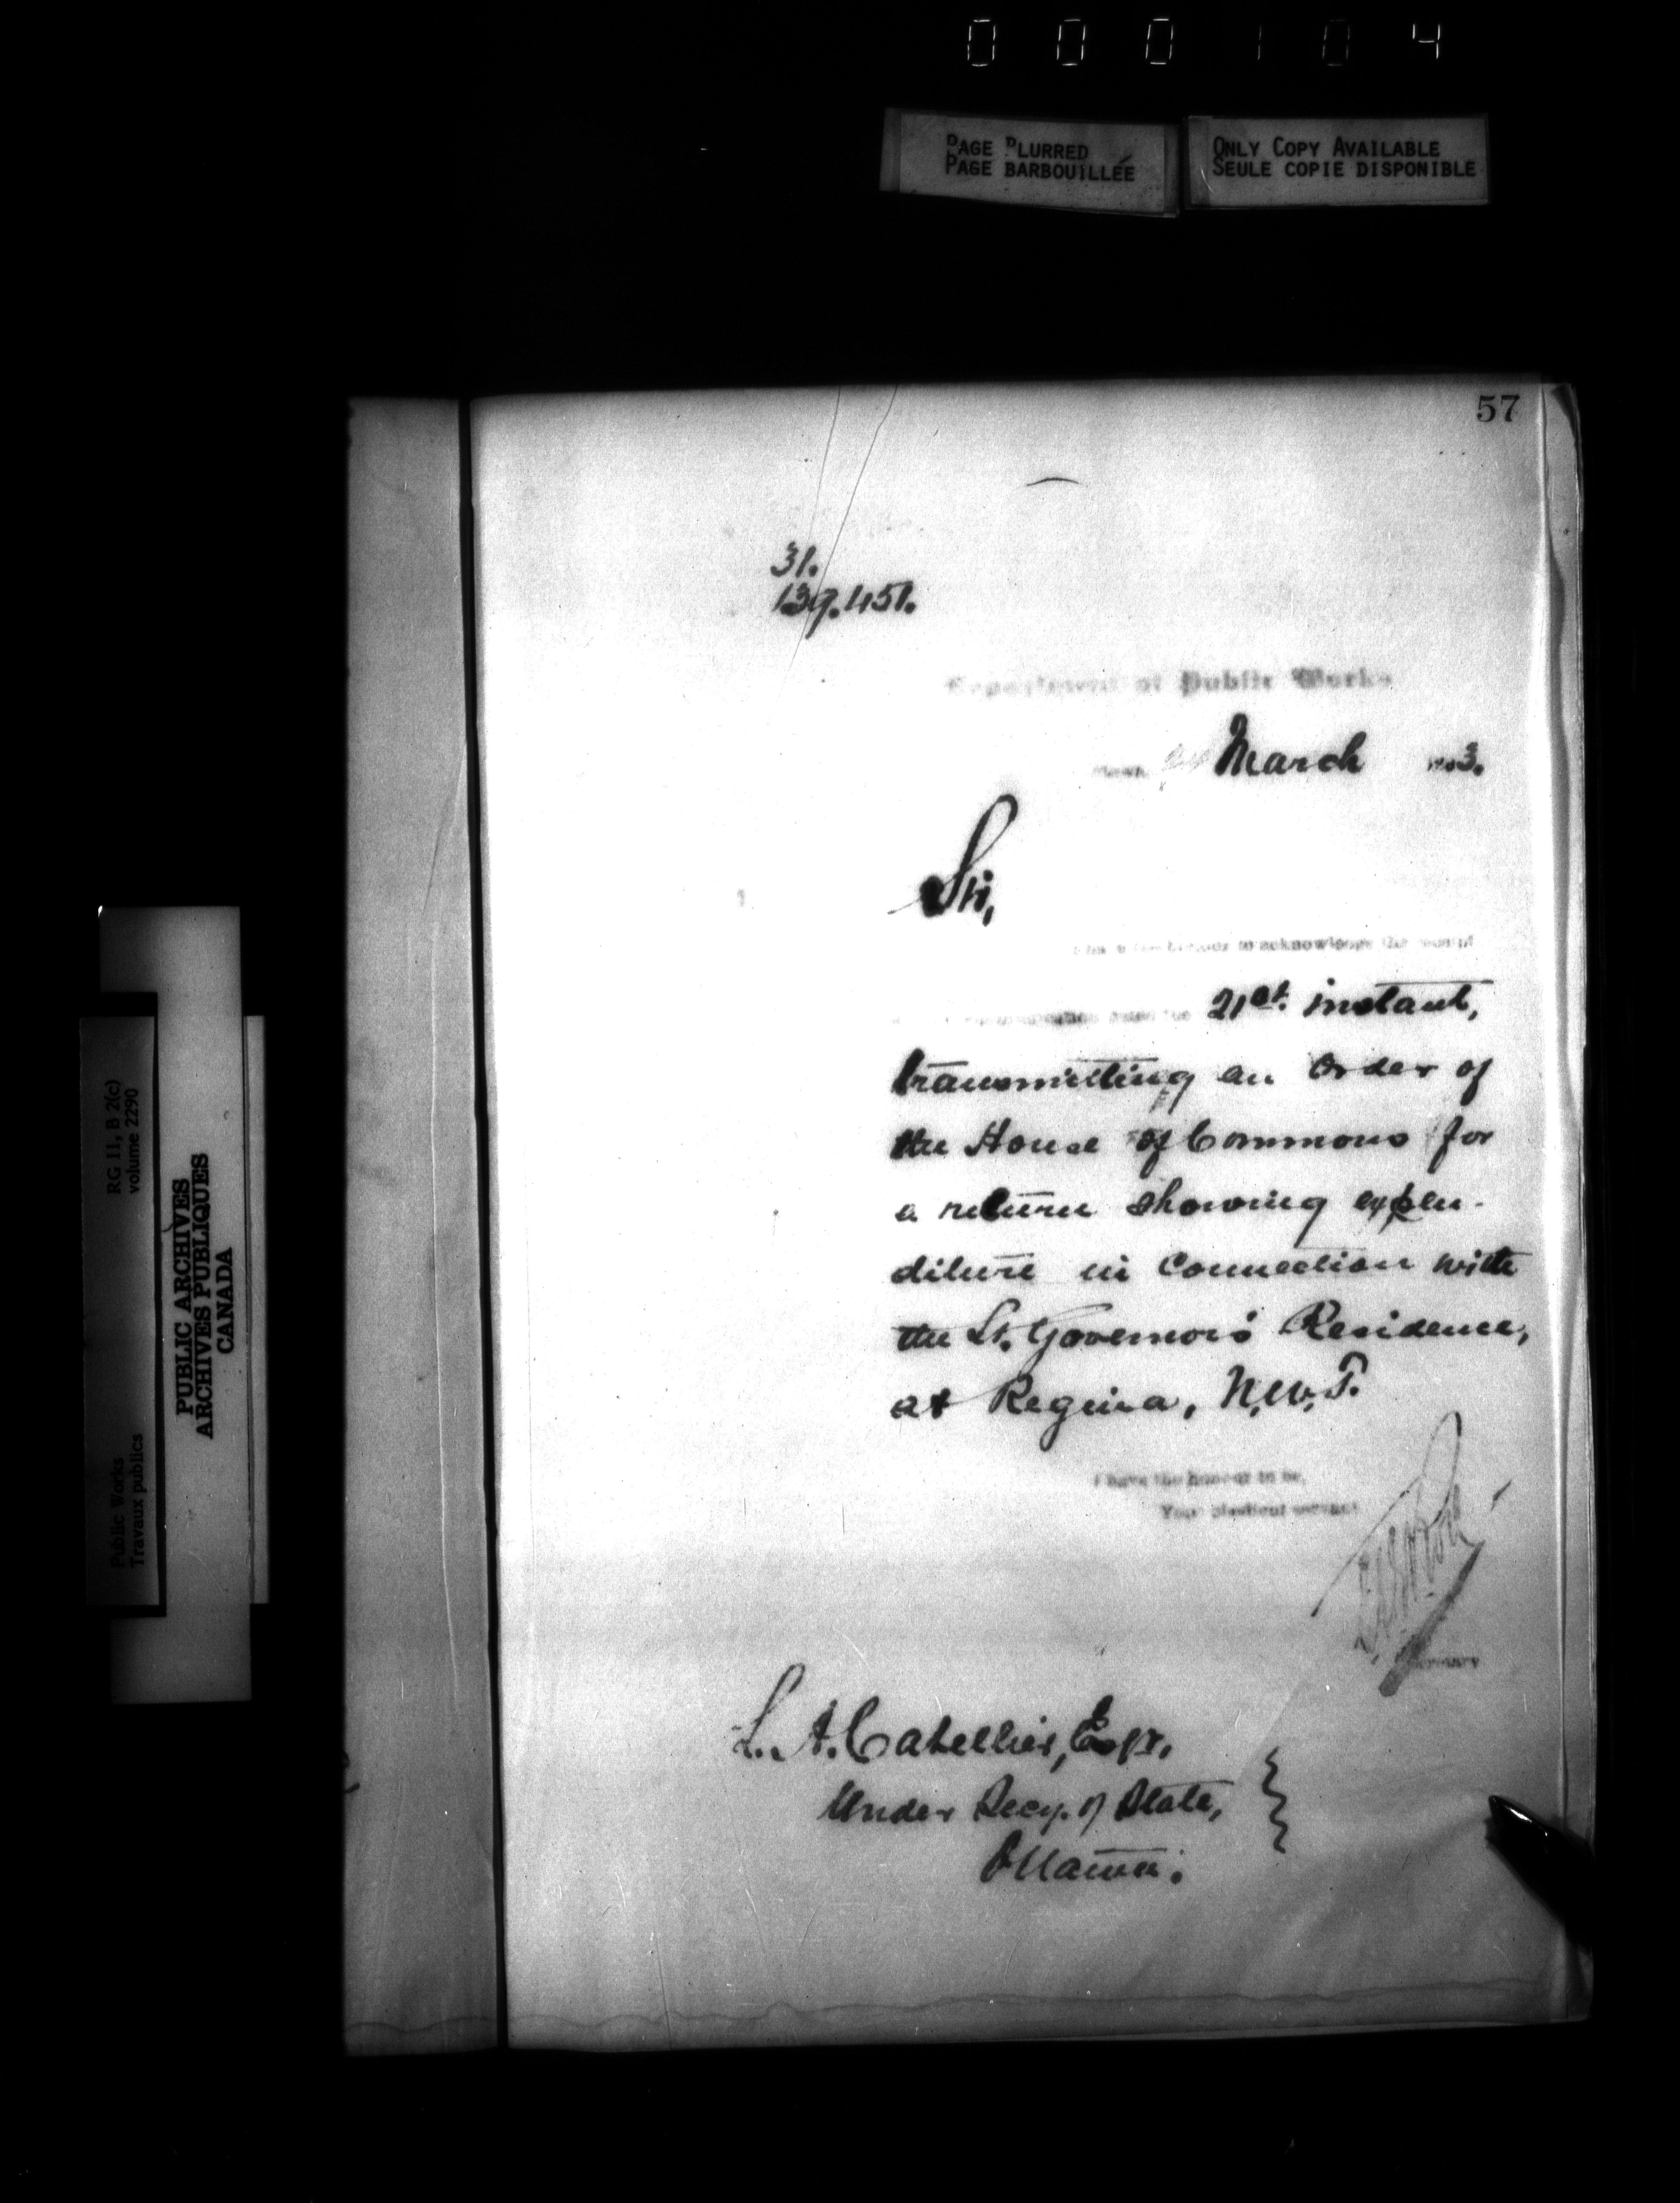 000104
PAGE BLURRED
PAGE BARBOUILLÉE
ONLY COPY AVAILABLE
SEULE COPIE DISPONIBLE
57
31.
139.451.
Department of Public Works
March 3.
Sir,
to acknowledge the receipt
21st. instant,
transmitting an Order of
the House of Commons for
a return showing expen-
diture in connection with
the Lt. Governor's Residence,
at Regina, N.W.T.
I have the honour to be,
Your obedient servant
Secretary
L. A. Catellier, Esqr.
Under Secy. of State,
Ottawa.
RG 11, B 2(c)
volume 2290
Public Works
Travaux publics
PUBLIC ARCHIVES
ARCHIVES PUBLIQUES
CANADA